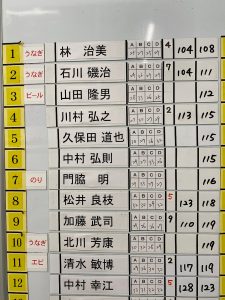 1 うなぎ 林 治美 A B C D 4 104 108
2 うなぎ 石川 磯治 A B C D 7 104 111
3 ビール 山田 隆男 A B C D 112
4 川村 弘之 A B C D 2 113 115
5 久保田 道也 A B C D 115
6 中村 弘則 A B C D 115
7 のり 門脇 明 A B C D 116
8 松井 良枝 A B C D 5 123 118
9 加藤 武司 A B C D 9 110 119
10 うなぎ 北川 芳康 A B C D 119
11 エビ 清水 敏博 A B C D 2 117 119
12 中村 幸江 A B C D 5 128 123